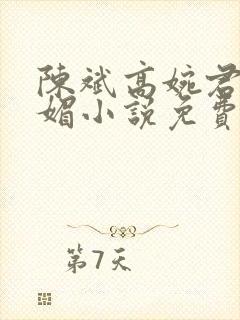 陳斌高婉君
媚小説免費
第7天